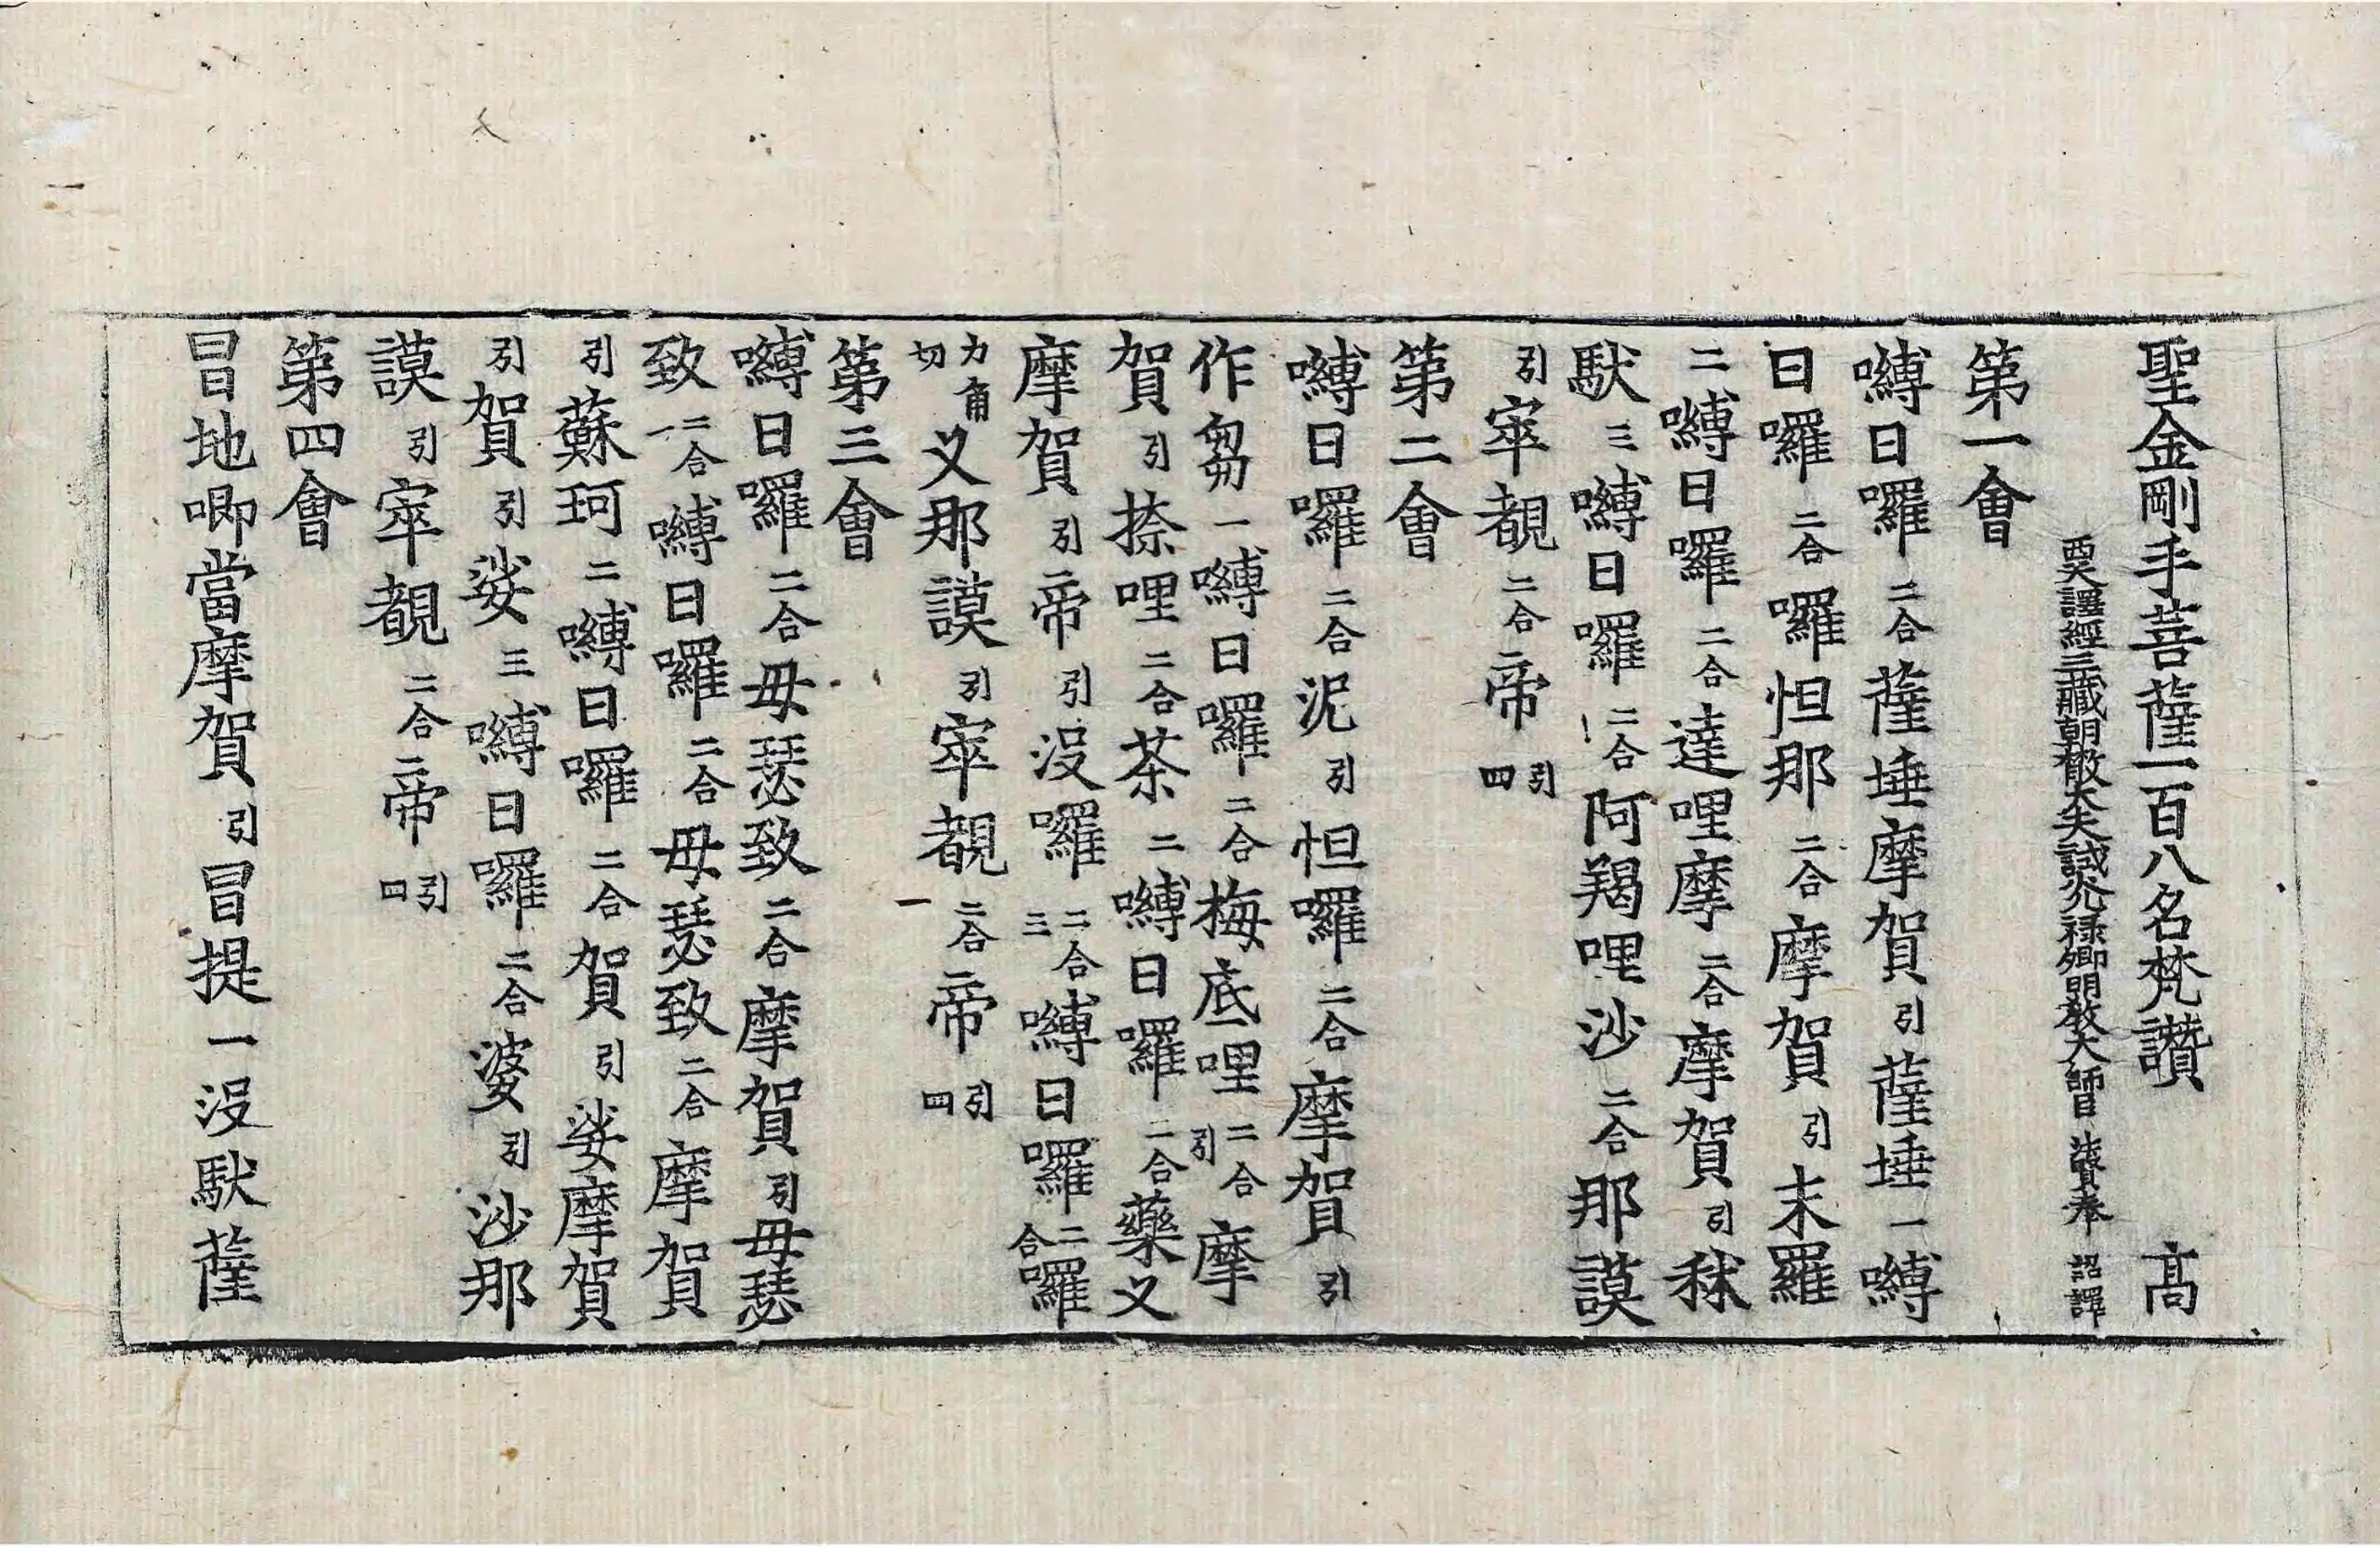 聖金剛手菩薩一百八名梵讚 高
西天譯經三藏朝散大夫試光祿卿明教大師臣法賢奉 詔譯
第一會
嚩日囉二合薩埵摩賀引薩埵一嚩
日囉二合囉怛那二合摩賀引末羅
二嚩日囉二合達哩摩二合摩賀引秫
馱三嚩日囉二合阿羯哩沙二合那謨
引窣覩二合帝引四
第二會
嚩日囉二合泥引怛囉二合摩賀引
作芻一嚩日囉二合梅底哩二合引摩
賀引捺哩二合茶二嚩日囉二合藥叉
摩賀引帝引沒囉二合三嚩日囉二合囉
力角切叉那謨引窣覩二合一帝引四
第三會
嚩日囉二合毋瑟致二合摩賀引毋瑟
致二合一嚩日囉二合毋瑟致二合摩賀
引蘇珂二嚩日囉二合賀引娑摩賀
引賀引娑三嚩日囉二合婆引沙那
謨引窣覩二合帝引四
第四會
冒地唧當摩賀引冒提一沒馱薩